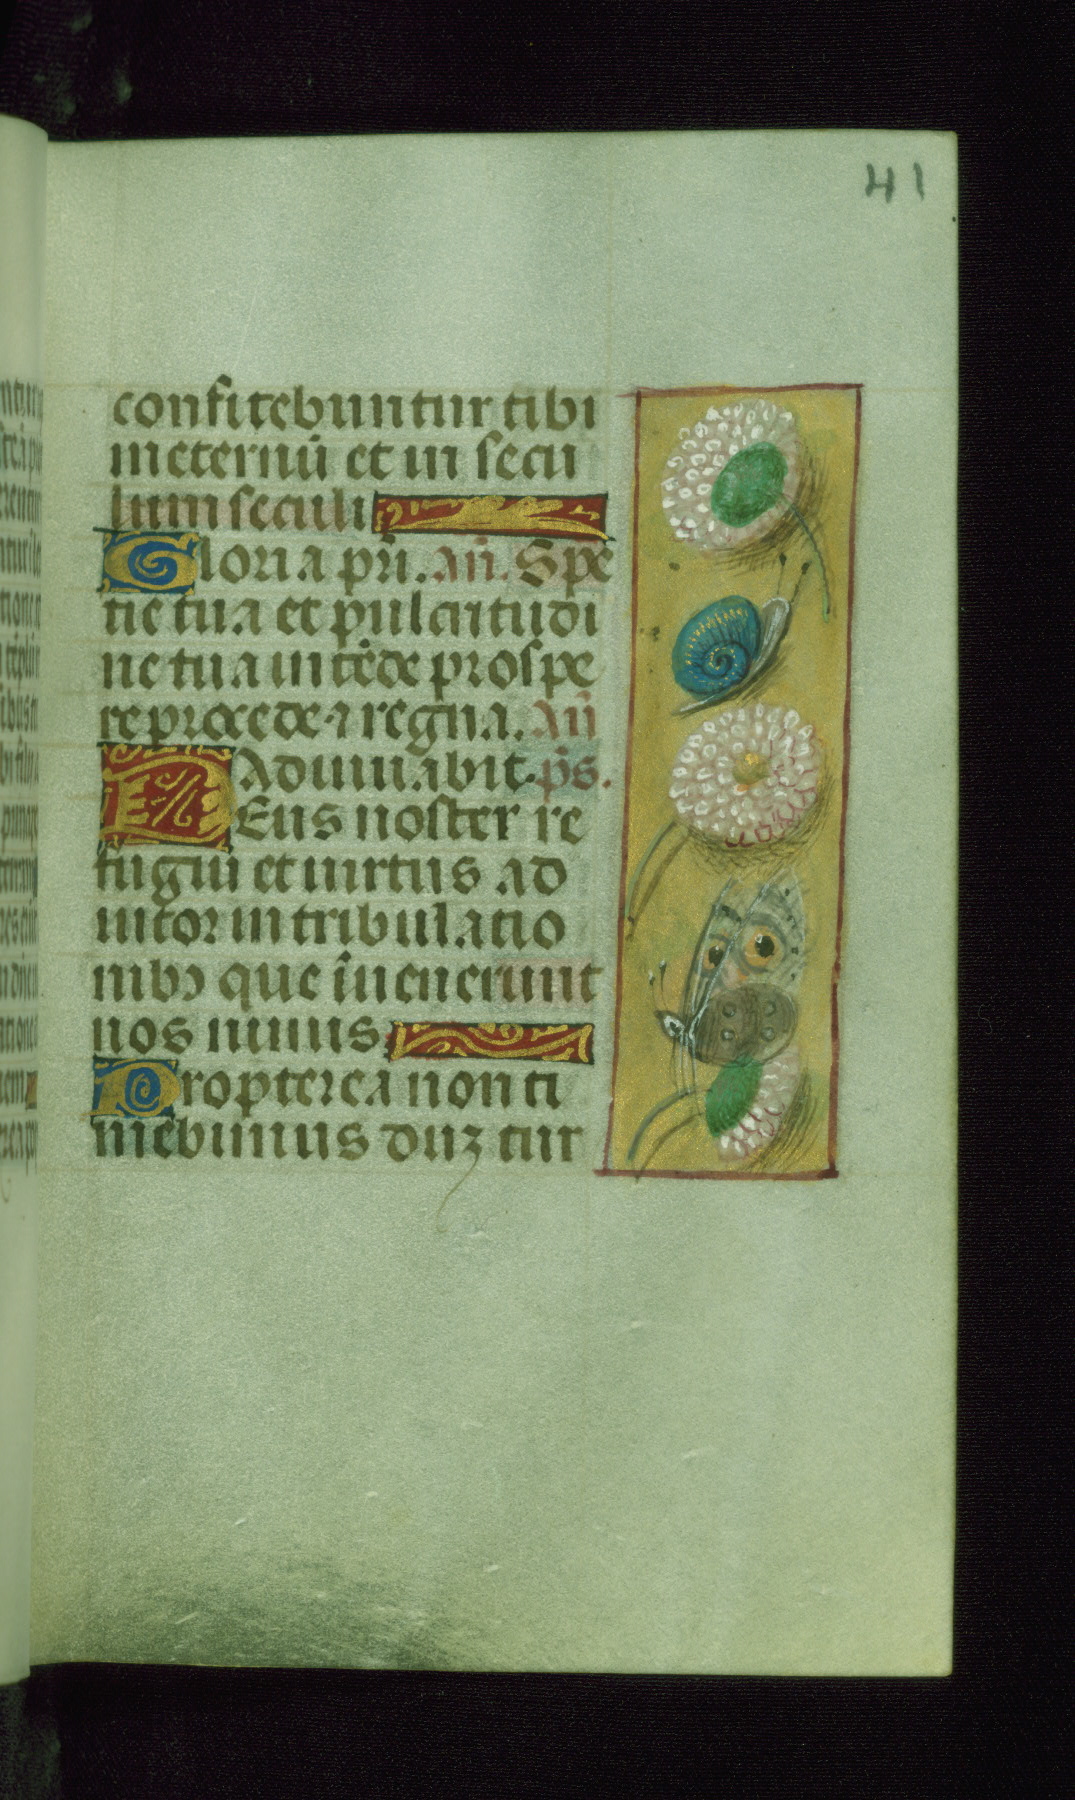 41
confitebuntur tibi
ineternū et in secu
lum seculi
Gloria pri. Añ. Spe
tie tua et pulcritudi
ne tua intēde prospe
re procede ⁊ regna. Añ
Adiuuabit. ps.
DEus noster re
fugiū et uirtus ad
iutor in tribulatio
nibꝰ que īuenerunt
nos nimis
Propterea non ti
mēbimus duꝫ tur